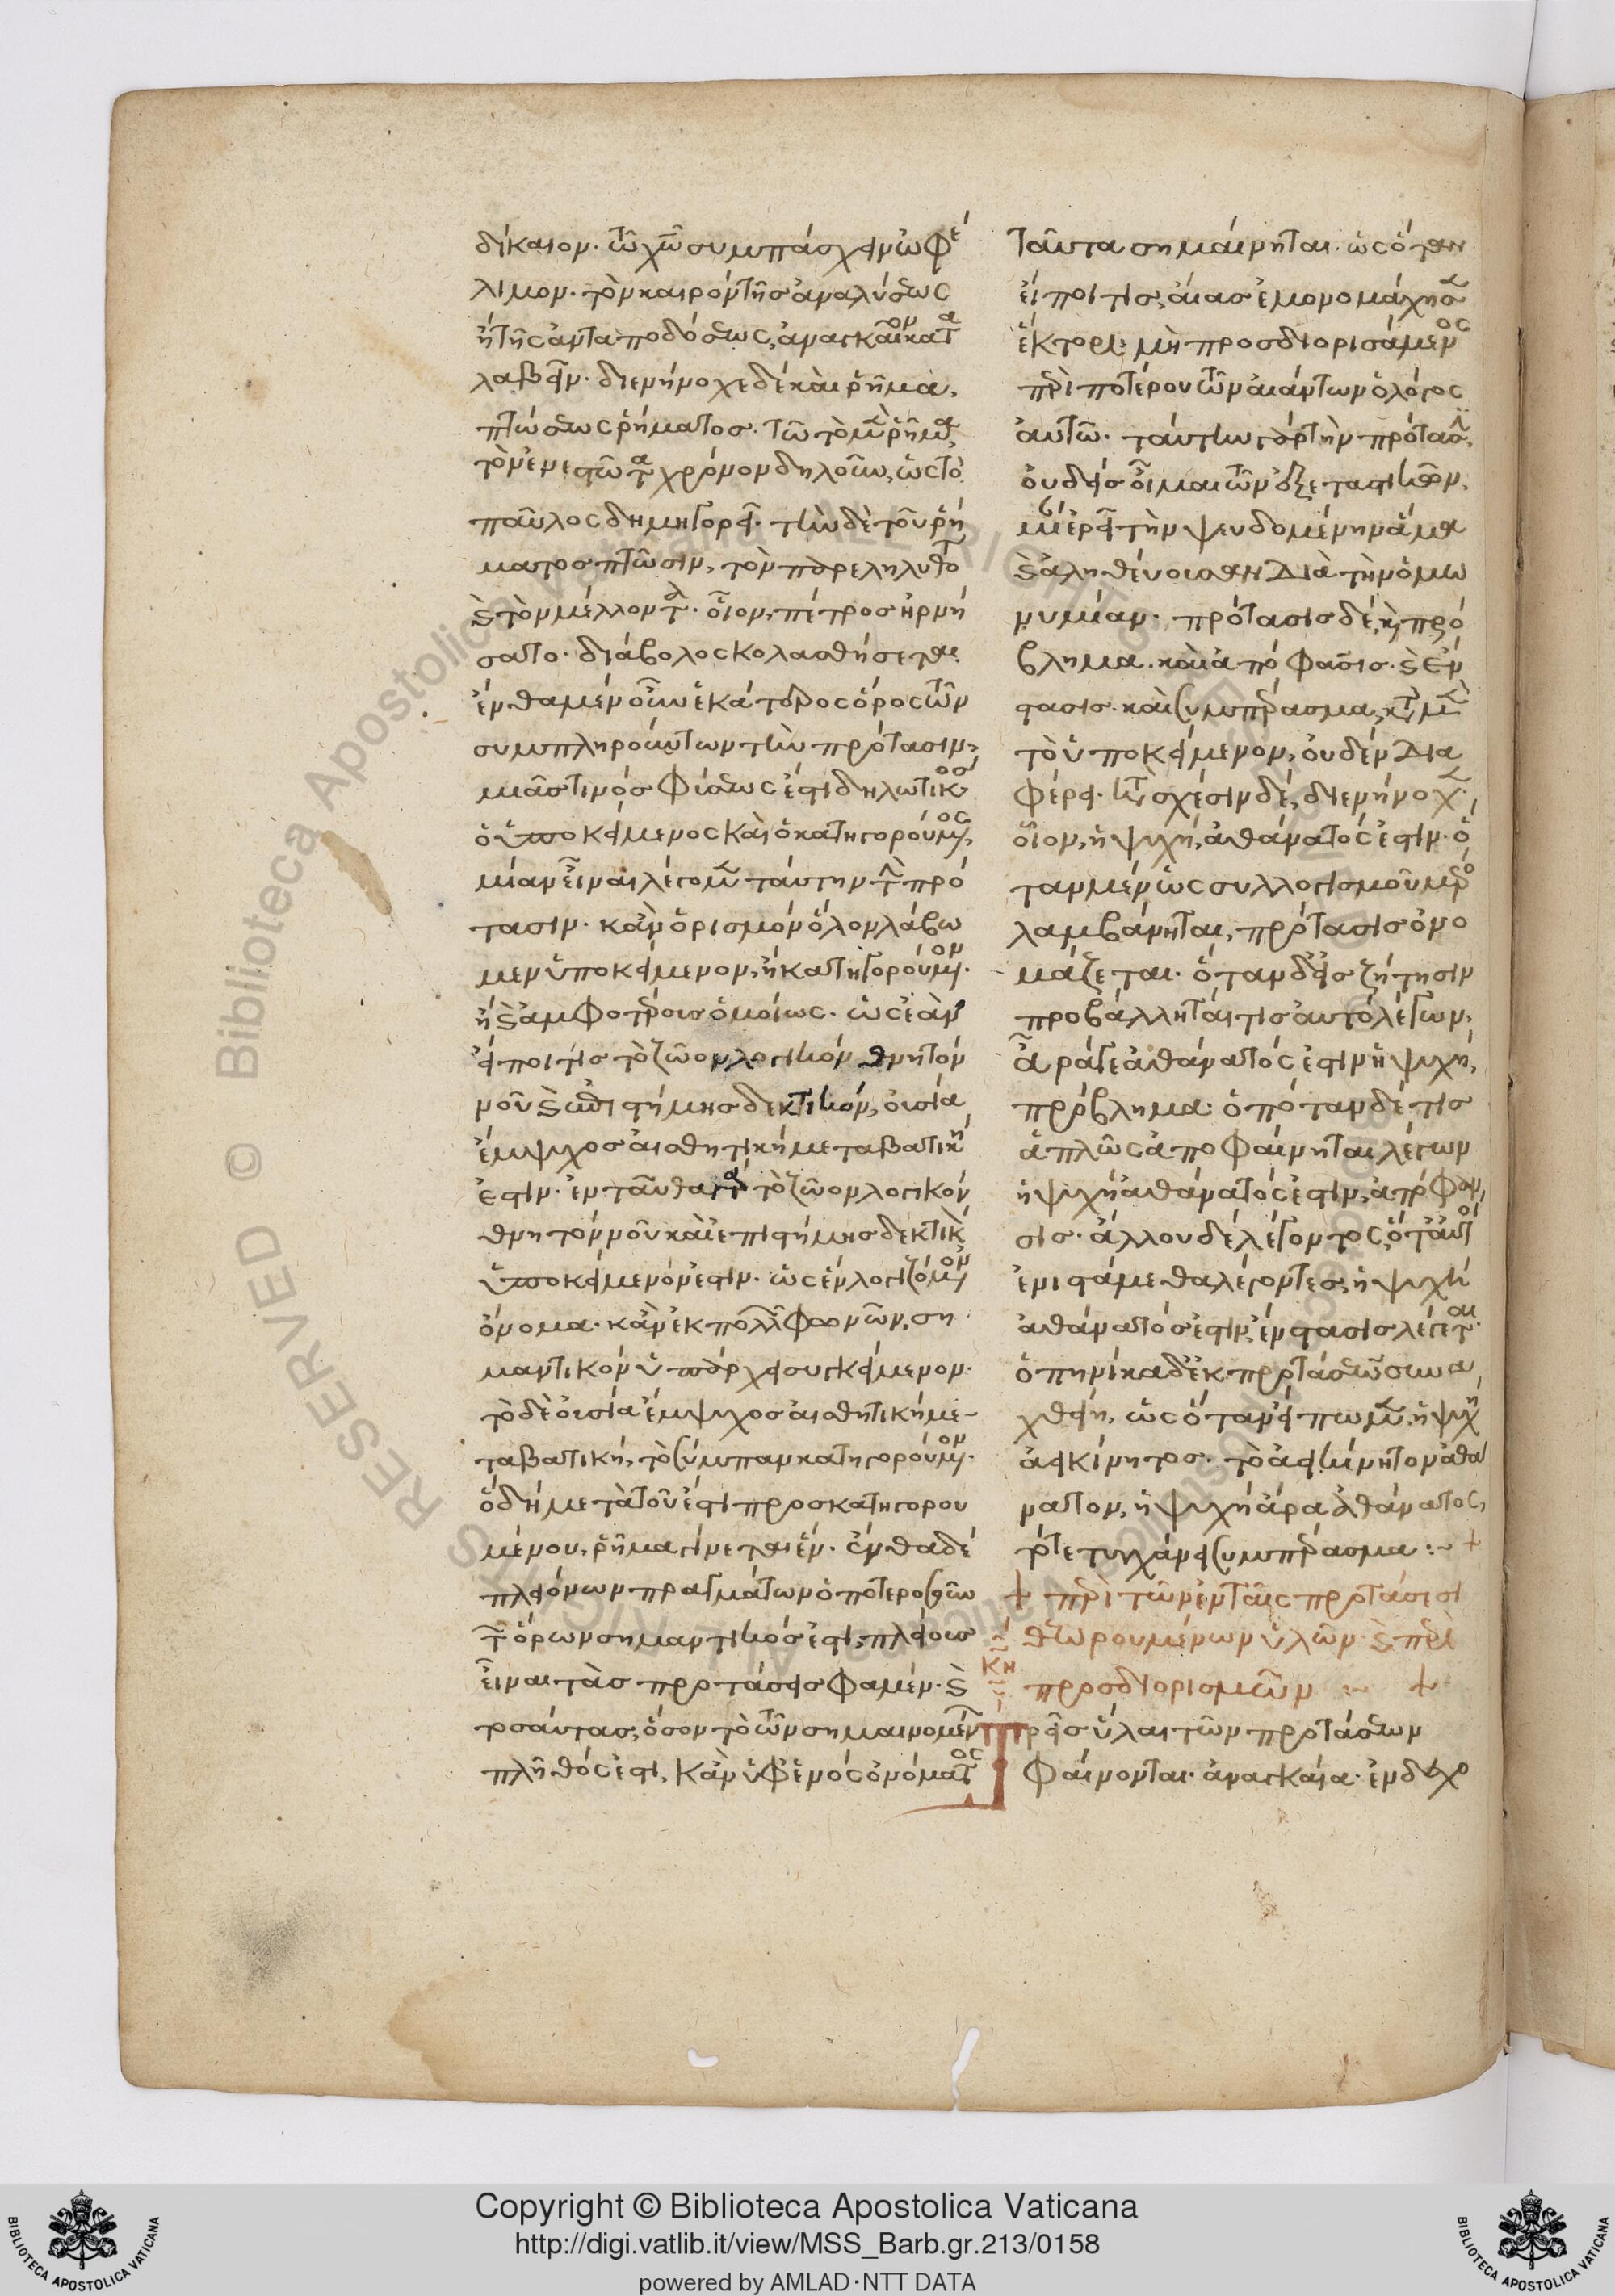 δίκαιον· τῶ χῶ συμπάσχειν ὠφέ
λιμον· τὸν καιρὸν τῆς ἀναλύσεως
ἢ τῆς ἀνταποδόσεως ἀναγκαῖον κατα
λαβεῖν· διενήνοχε δὲ καὶ ῥῆμα,
πτώσεως ῥήματος· τῶ τὸ μὲν ῥῆμα,
τὸν ἐνεστῶτα χρόνον δηλοῦν, ὡς τὸ
παῦλος δημηγορεῖ· τὴν δὲ τοῦ ῥή
ματος πτῶσιν, τὸν παρεληλυθότα
καὶ τὸν μέλλοντα· οἷον, πέτρος ἠρνή
σατο· διάβολος κολασθήσεται·
ἔνθα μὲν οὖν ἑκάτερος ὅρος τῶν
συμπληρούντων τὴν πρότασιν,
μιᾶς τινὸς φύσεως ἐστὶ δηλωτικὸς
ὁ ὑποκείμενος καὶ ὁ κατηγορούμενος,
μίαν εἶναι λέγομεν ταύτην τὴν πρό
τασιν· κἂν ὁρισμὸν ὅλον λάβω
μεν ὑποκείμενον, ἢ κατηγορούμενον·
ἢ καὶ ἀμφοτέροις ὁμοίως· ὡς ἐὰν
εἴποι τις τὸ ζῶον λογικὸν θνητὸν
νοῦ καὶ ἐπιστήμης δεκτικόν, οὐσία
ἔμψυχος αἰσθητικὴ μεταβατικὴ
ἐστιν· ἐνταῦθα γὰρ τὸ ζῶον λογικὸν
θνητὸν νοῦ καὶ ἐπιστήμης δεκτικὸν
ὑποκείμενόν ἐστιν· ὡς ἓν λογιζόμενον
ὄνομα· κἂν ἐκ πολλῶν φωνῶν, ση
μαντικὸν ὑπάρχει συγκείμενον·
τὸ δὲ οὐσία ἔμψυχος αἰσθητικὴ με
ταβατική, τὸ σύμπαν κατηγορούμενον·
ὃ δὴ μετὰ τοῦ ἐστὶ προσκατηγορου
μένου, ῥῆμα γίνεται ἕν· ἔνθα δὲ
πλειόνων πραγμάτων ὁπότερος οὖν
τῶν ὅρων σημαντικός ἐστι, πλείους
εἶναι τὰς προτάσεις φαμέν· καὶ
τοσαύτας, ὅσον τὸ τῶν σημαινομένων
πλῆθός ἐστι, κἂν ὑφ' ἑνὸς ὀνόματος
ταῦτα σημαίνηται· ὡς ὅταν
εἴποι τις, αἴας ἐμονομάχησεν
ἕκτορι· μὴ προσδιορισάμενος
περὶ ποτέρου τῶν αἰάντων ὁ λόγος
αὐτῶ· ταύτην γὰρ τὴν πρότασιν,
οὐδεὶς οἶμαι τῶν ἐξεταστικῶν,
μίαν ἐρεῖ τὴν ψευδομένην ἅμα
καὶ ἀληθεύουσαν διὰ τὴν ὁμω
νυμίαν· πρότασις δέ, καὶ πρό
βλημα· καὶ ἀπόφασις· καὶ ἔν
στασις· καὶ συμπέρασμα, κατὰ μὲν
τὸ ὑποκείμενον, οὐδὲν δια
φέρει· κατὰ σχέσιν δέ, διενήνοχεν·
οἷον, ἡ ψυχή, ἀθάνατός ἐστιν· ὅ
ταν μὲν ὡς συλλογισμοῦ μέρος
λαμβάνηται, πρότασις ὀνο
μάζεται· ὅταν δ' εἰς ζήτησιν
προβάλληταί τις αὐτὸ λέγων,
ἆρά γε ἀθάνατός ἐστιν ἡ ψυχή,
πρόβλημα· ὁπόταν δέ τις
ἁπλῶς ἀποφαίνηται λέγων
ἡ ψυχὴ ἀθάνατός ἐστιν, ἀπόφαν
σις· ἄλλου δὲ λέγοντος, ὅταν
ἐνιστάμεθα λέγοντες, ἡ ψυχὴ
ἀθάνατός ἐστιν, ἔνστασις λέγεται·
ὁπηνίκα δ' ἐκ προτάσεων συνα
χθείη, ὡς ὅταν εἴπωμεν, ἡ ψυχὴ
ἀεικίνητος· τὸ ἀεικίνητον ἀθά
νατον, ἡ ψυχὴ ἄρα ἀθάνατος,
τότε τυγχάνει συμπέρασμα :~ +
+ περὶ τῶν ἐν ταῖς προτάσεσι
θεωρουμένων ὑλῶν· καὶ περὶ
κη προσδιορισμῶν :~ +
Τρεῖς ὕλαι τῶν προτάσεων
φαίνονται· ἀναγκαία· ἐνδεχο
Copyright © Biblioteca Apostolica Vaticana
http://digi.vatlib.it/view/MSS_Barb.gr.213/0158
powered by AMLAD·NTT DATA